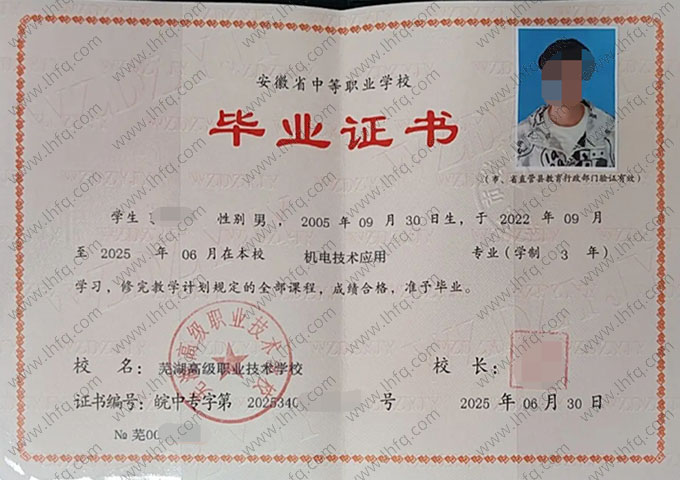 安徽省中等职业学校
毕业证书
(市、省直管县教育行政部门验证有效)
学生 性别 男 , 2005 年 09 月 30 日生, 于 2022 年 09 月
至 2025 年 06 月在本校 机电技术应用 专业 (学制 3 年)
学习, 修完教学计划规定的全部课程, 成绩合格, 准予毕业。
校 名: 芜湖高级职业技术学校 校 长:
证书编号: 皖中专字第 2025340 号 2025 年 06 月 30 日
№ 芜00
芜湖高级职业技术学校
www.lhfq.com